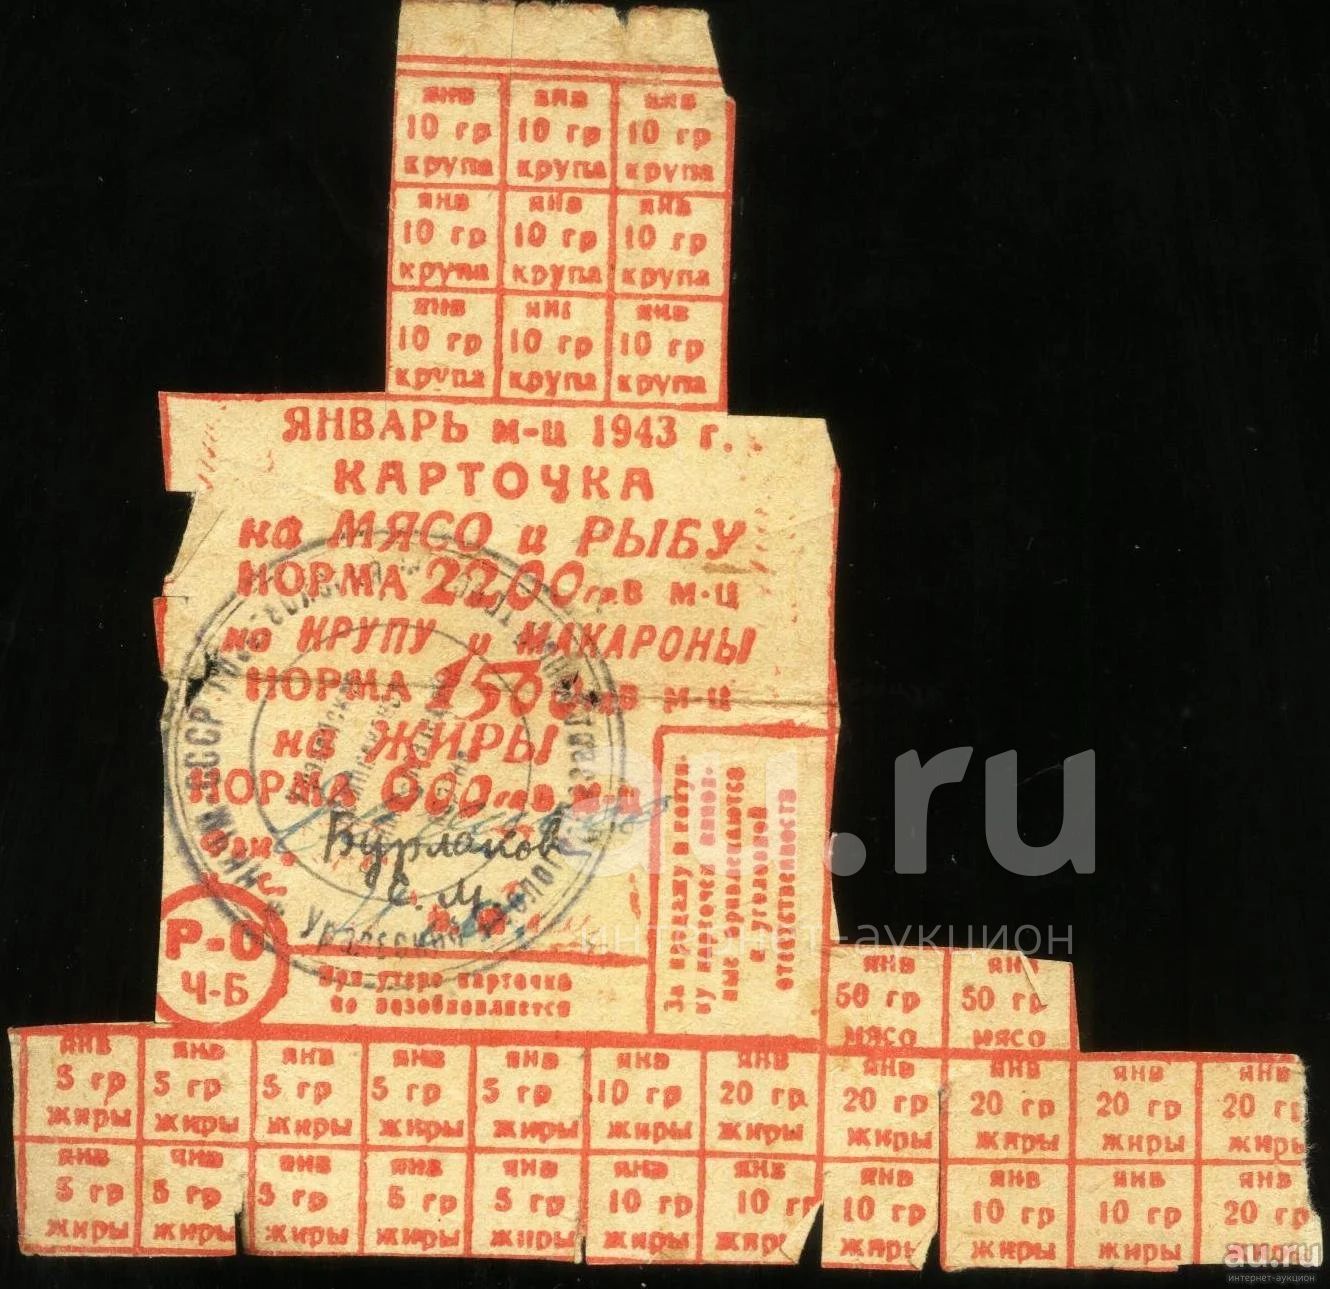 янв янв янв
10 гр 10 гр 10 гр
крупа крупа крупа
янв янв янв
10 гр 10 гр 10 гр
крупа крупа крупа
янв янв янв
10 гр 10 гр 10 гр
крупа крупа крупа
ЯНВАРЬ м-ц 1943 г.
КАРТОЧКА
на МЯСО и РЫБУ
НОРМА 2200 гр. в м-ц
на КРУПУ и МАКАРОНЫ
НОРМА 1500 в м-ц
на ЖИРЫ
НОРМА 600 гр в м-ц
Бурлаков
С. М.
Р-0
Ч-Б
При утере карточка
не возобновляется
За продажу и покуп-
ку карточек винов-
ные привлекаются
к уголовной
ответственности
янв янв
50 гр 50 гр
мясо мясо
янв янв янв янв янв янв янв янв янв янв янв
5 гр 5 гр 5 гр 5 гр 5 гр 10 гр 20 гр 20 гр 20 гр 20 гр 20 гр
жиры жиры жиры жиры жиры жиры жиры жиры жиры жиры жиры
янв янв янв янв янв янв янв янв янв янв янв
5 гр 5 гр 5 гр 5 гр 5 гр 10 гр 10 гр 10 гр 10 гр 10 гр 20 гр
жиры жиры жиры жиры жиры жиры жиры жиры жиры жиры жиры
au.ru
интернет-аукцион
au.ru
интернет-аукцион